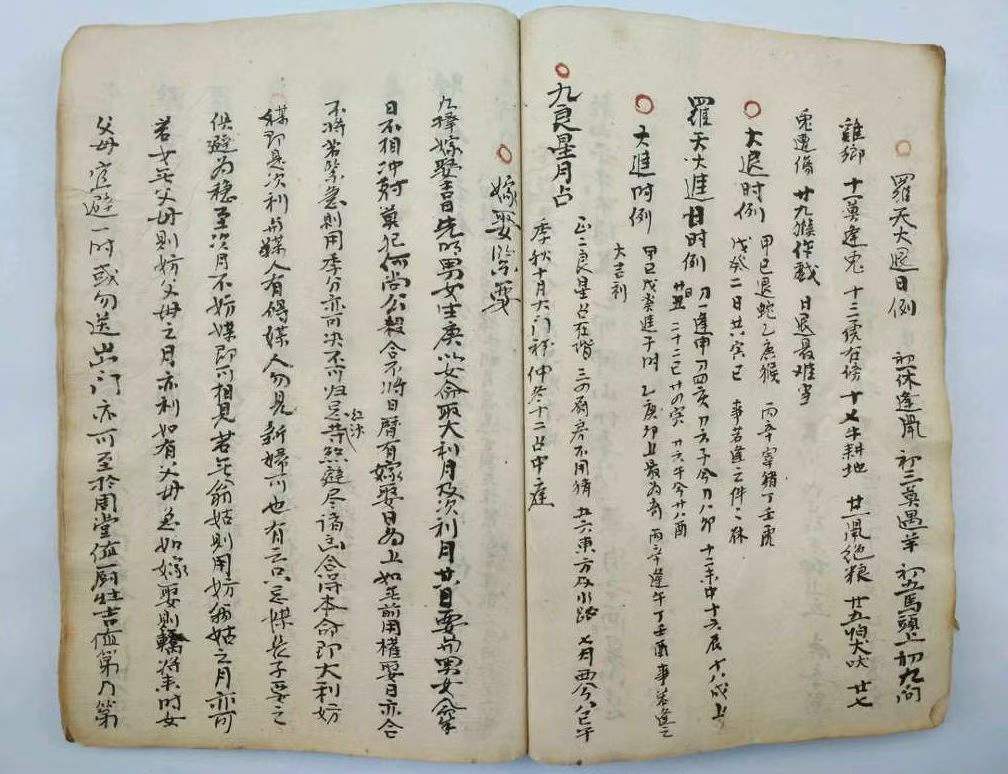 羅天大退日例 初一休逢鼠 初三莫遇羊 初五馬頭上 初九問
雞鄉 十一莫逢兎 十三虎在傍 十七牛耕地 廿一鼠絕粮 廿五怕犬吠 廿七
兎遭傷 廿九猴作戲 日退最难当
大退时例 甲己退蛇乙庚猴 丙辛寧猪丁壬虎
戊癸二日共寅己 事若逢之件々休
羅天大進日时例 初一逢申初四亥 初六子今初八卯 十一未中十六辰 十八戌上
廿二己廿四寅 廿六午今廿八酉
大進时例 甲己戊癸進子时 乙庚卯上最为有 丙辛逢午丁壬酉 事若逢之
大吉利
九良星月占 正二良星占在堦 三四厨房不用猜 五六東方及水路 七月西今八己午
季秋十月大门 仲冬十二占中庭
嫁娶
凡擇嫁娶吉日先明男女生庚以女命取大利月及次利月其日要与男女命
日不相冲尅莫犯何尚公殺合不將日暦有嫁娶日为上如年前用權娶日亦合
不將若緊急則用季分亦可决不可归忌
媒即是次利与媒人有碍媒人勿見新婦可也有云只忌媒長子要之
俱避为稳至次月不妨媒即可相見若无翁姑則用妨翁姑之月亦可
若女无父母則妨父母之月亦利如有父母急如嫁娶則轎將来时女
父母宜避一时或勿送出门亦可至於周堂值厨灶吉值第乃第